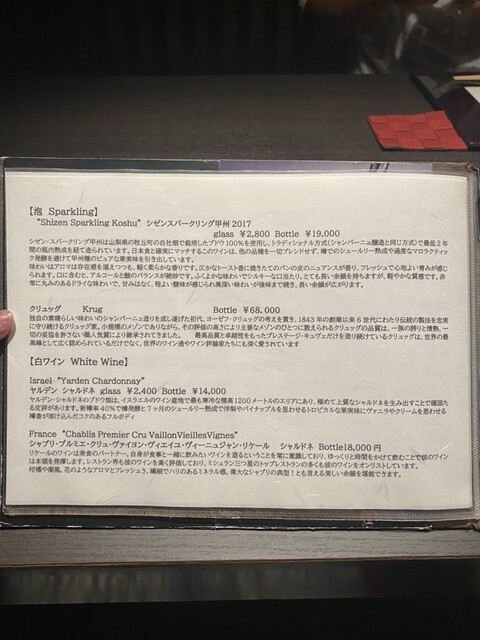 【泡 Sparkling】
"Shizen Sparkling Koshu" シゼンスパークリング甲州 2017
glass ¥2,800 Bottle ¥19,000
シゼン・スパークリング甲州は山梨県の牧丘町の自社畑で栽培したブドウ100％を使用し、トラディショナル方式(シャンパーニュ醸造と同じ方式)で最低2年
間の瓶内熟成を経て造られています。日本食と確実にマッチするこのワインは、他の品種を一切ブレンドせず、樽でのシュールリー熟成や過度なマロラクティッ
ク発酵を避けて甲州種のピュアな果実味を引き出しています。
味わいはアロマは存在感を湛えつつも、軽く柔らかな香りです。仄かなトースト香に焼きたてのパンの皮のニュアンスが香り、フレッシュで心地よい青みが感じ
られます。口に含むと、アルコールと酸のバランスが絶妙です。ふくよかな味わいでシルキーな口当たり、とても長い余韻を持ちますが、軽やかな質感です。非
常に丸みのあるドライな味わいで、甘みはなく、程よい酸味が感じられ奥深い味わいが後味まで続き、長い余韻が広がります。
クリュッグ Krug Bottle ¥68,000
独自の素晴らしい味わいのシャンパーニュ造りを成し遂げた初代、ヨーゼフ・クリュッグの考えを貫き、1843年の創業来6世代にわたり伝統の製法を忠実
に守り続けるクリュッグ家。小規模のメゾンでありながら、その評価の高さにより主要なメゾンのひとつに数えられるクリュッグの品質は、一族の誇りと情熱、一
切の妥協を許さない職人気質により継承されてきました。 最高品質と卓越性をもったプレステージ・キュヴェだけを造り続けているクリュッグは、世界の最
高峰として広く認められているだけでなく、世界のワイン通やワイン評論家たちにも深く愛されています
【白ワイン White Wine】
Israel "Yarden Chardonnay"
ヤルデン シャルドネ glass ¥2,400 Bottle ¥14,000
ヤルデン・シャルドネのブドウ畑は、イスラエルのワイン産地で最も寒冷な標高1200メートルのエリアにあり、極めて上質なシャルドネを生み出すことで確固た
る定評があります。新樽率40％で樽発酵と7ヶ月のシュールリー熟成で洋梨やパイナップルを思わせるトロピカルな果実味にヴァニラやクリームを思わせる
樽香が溶け込んだコクのあるフルボディ
France "Chablis Premier Cru VaillonVieillesVignes"
シャブリ・プルミエ・クリュ・ヴァイヨン・ヴィエイユ・ヴィーニュジャン・リケール シャルドネ Bottle18,000円
リケールのワインは美食のパートナー。自身が食事と一緒に飲みたいワインを造るということを常に意識しており、ゆっくりと時間をかけて飲むことで彼のワイン
は本領を発揮します。レストラン界も彼のワインを高く評価しており、ミシュラン三つ星のトップレストランの多くも彼のワインをオンリストしています。
柑橘や潮風、花のようなアロマとフレッシュさ、繊細でハリのあるミネラル感。偉大なシャブリの典型！とも言える美しい余韻を堪能できます。